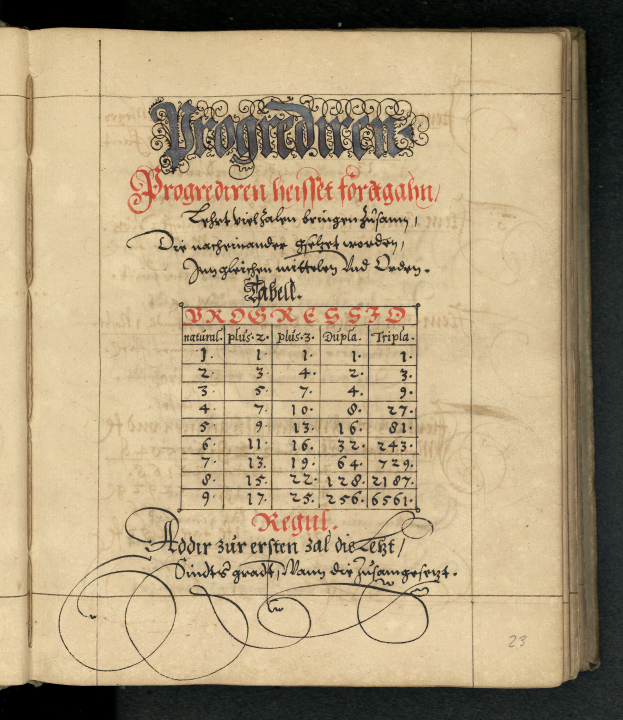 Progrediren
Progrediren heisset fordtgahn,
Lehrt viel zalen bringen zusamn,
Die nacheinander gesetzet worden,
Inn gleichen mittelen Vnd Orden.
Tabell.
PROGRESSIO
natural. plus. 2. plus. 3. Dupla. Tripla.
1. 1. 1. 1. 1.
2. 3. 4. 2. 3.
3. 5. 7. 4. 9.
4. 7. 10. 8. 27.
5. 9. 13. 16. 81.
6. 11. 16. 32. 243.
7. 13. 19. 64. 729.
8. 15. 22. 128. 2187.
9. 17. 25. 256. 6561.
Regul.
Addir zur ersten zal die Letzt,
Sindt's gradt, Wann die zusamgesetzt.
23